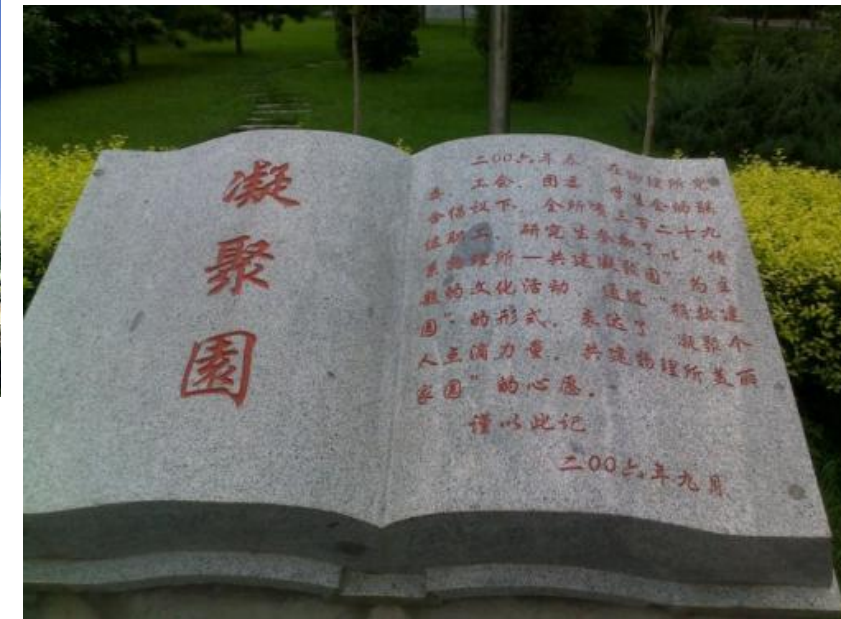 凝聚園
二〇〇六年春，在物理所党
委、工会、团委、学生会的联
合倡议下，全所有三百二十九
位职工、研究生参加了以“情
系物理所—共建凝聚园”为主
题的文化活动，通过“捐款建
园”的形式，表达了“凝聚个
人点滴力量，共建物理所美丽
家园”的心愿。
谨以此记
二〇〇六年九月